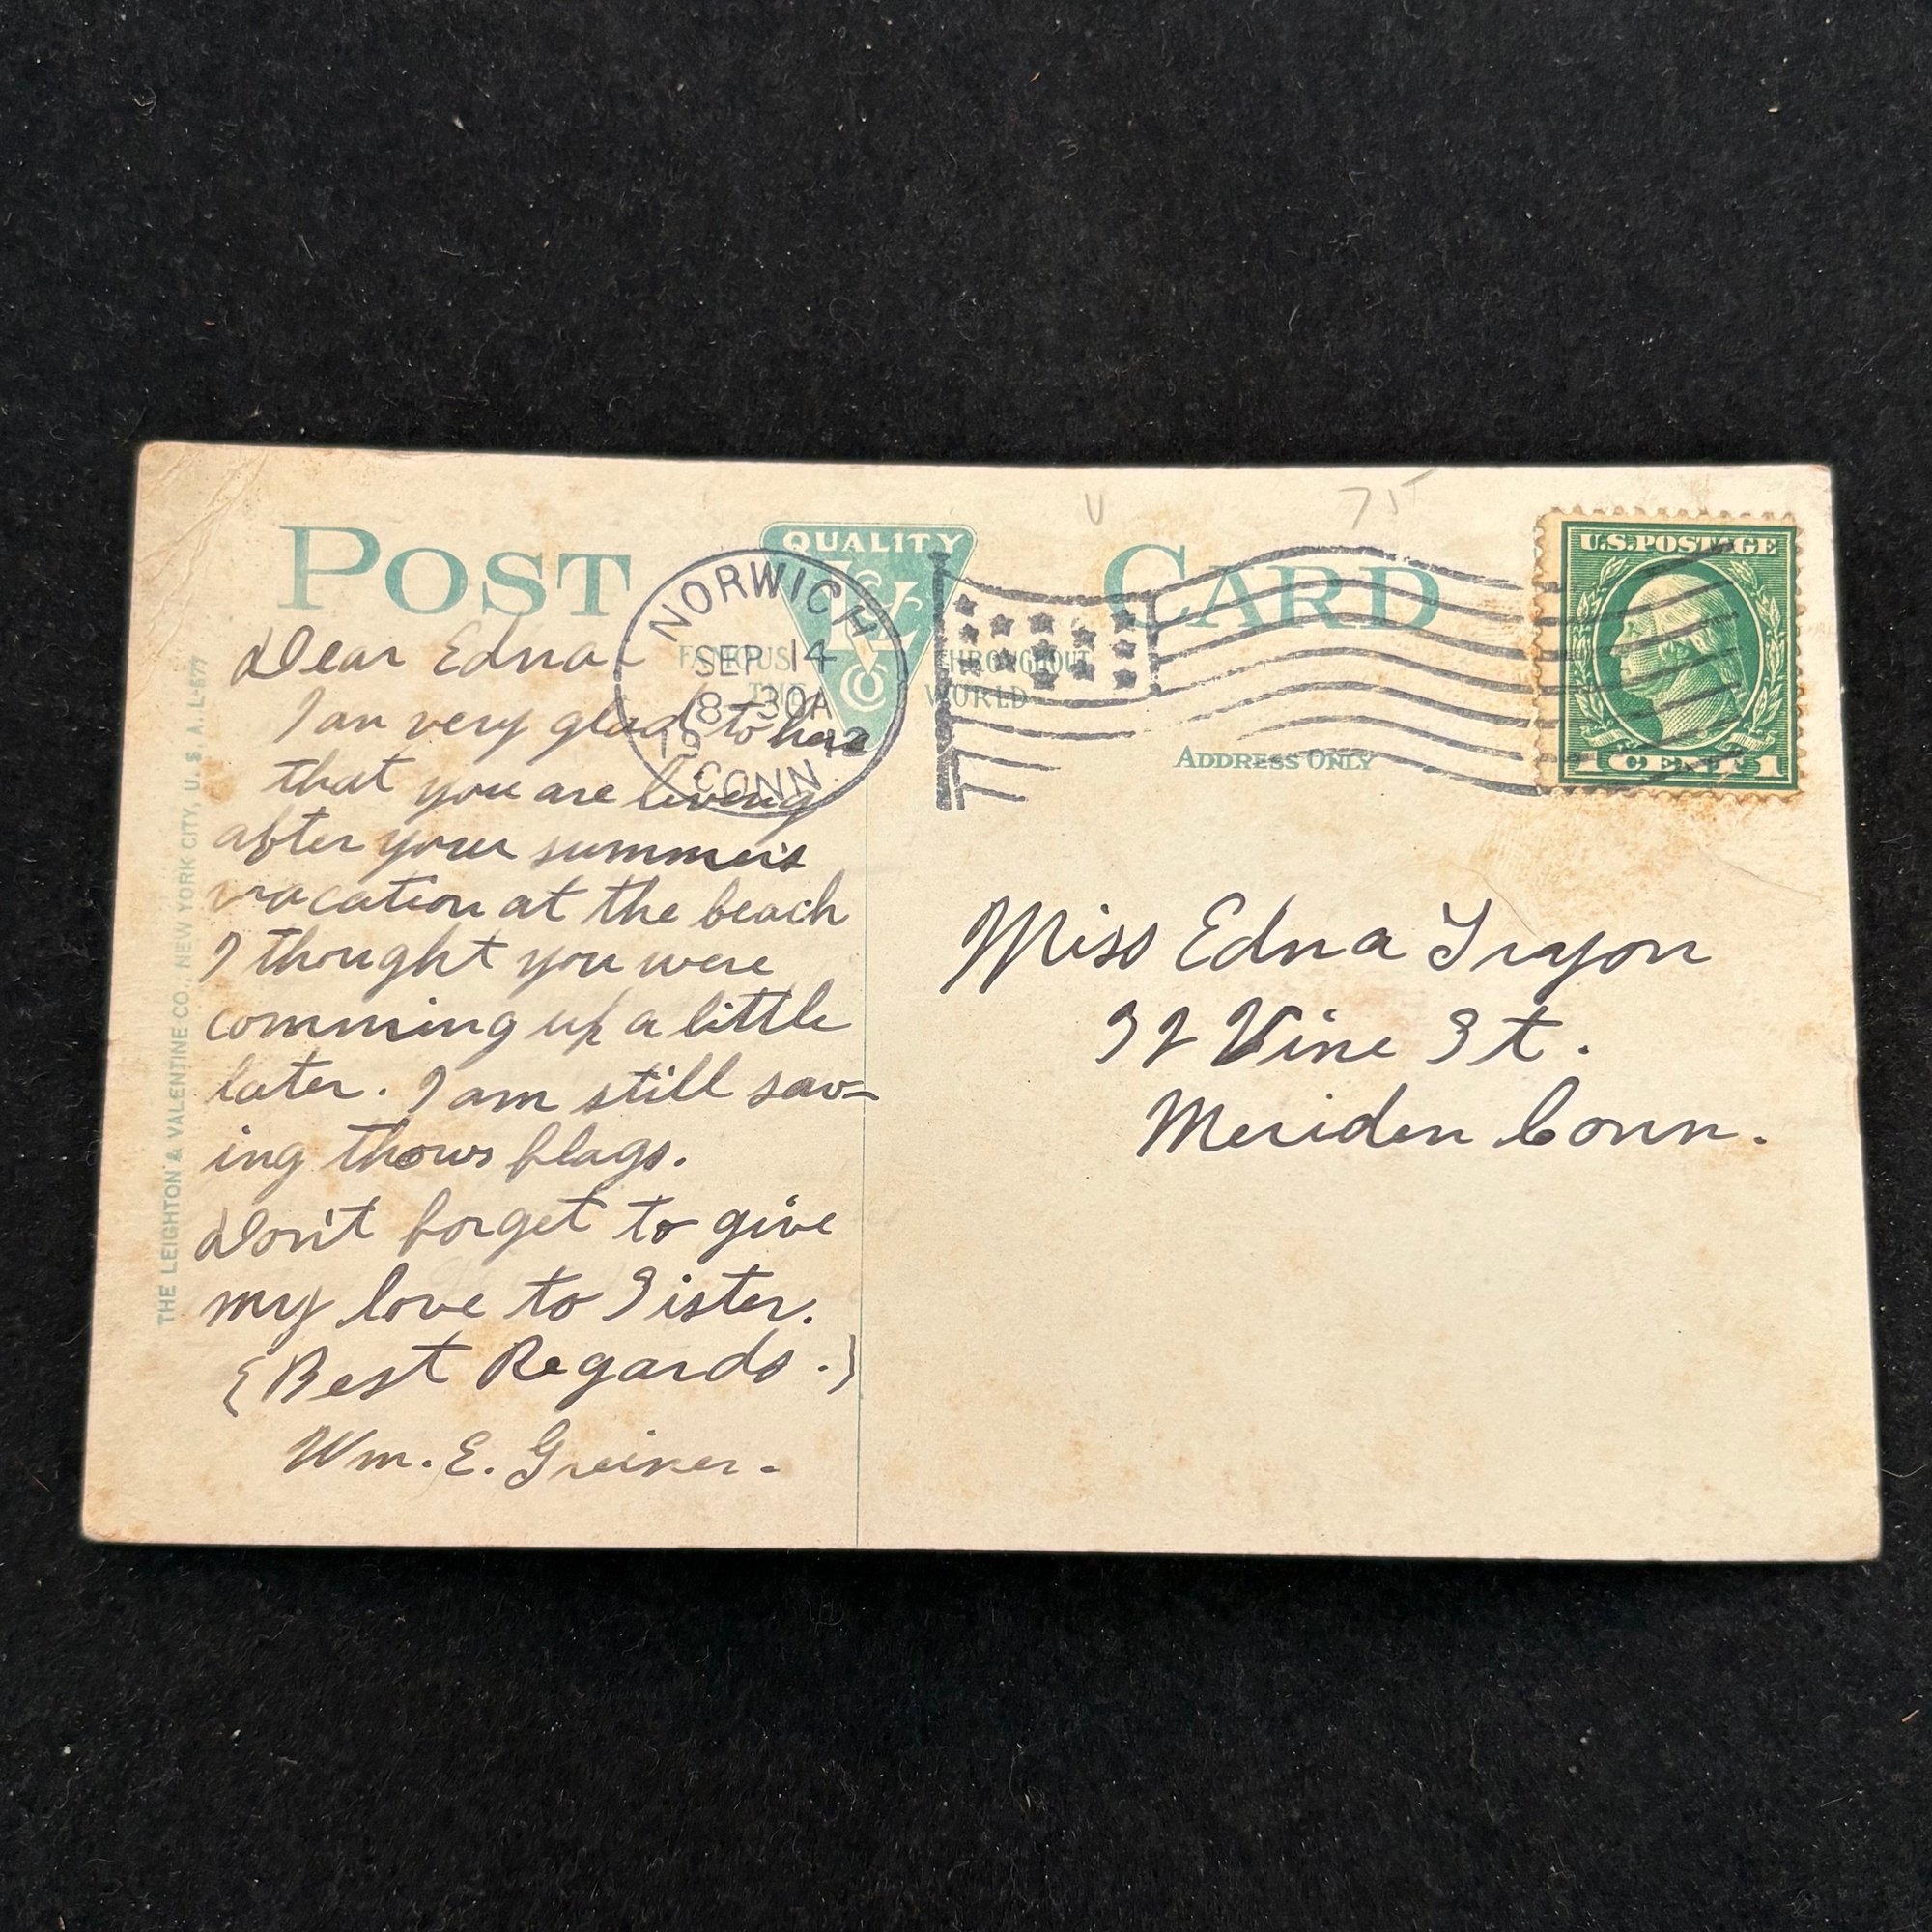 POST CARD
QUALITY
LV
Co
FAMOUS THROUGHOUT
THE WORLD
NORWICH
SEP 14
8-30A
CONN.
U 75
U.S.POSTAGE
1 CENT 1
ADDRESS ONLY
THE LEIGHTON & VALENTINE CO., NEW YORK CITY, U. S. A. L-677
Dear Edna-
I am very glad to here
that you are liveing
after your summer's
vacation at the beach
I thought you were
comming up a little
later. I am still sav=
ing thows flags.
Don't forget to give
my love to Sister.
{Best Regards.}
Wm. E. Greiner.
Miss Edna Tryon
32 Vine St.
Meriden Conn.